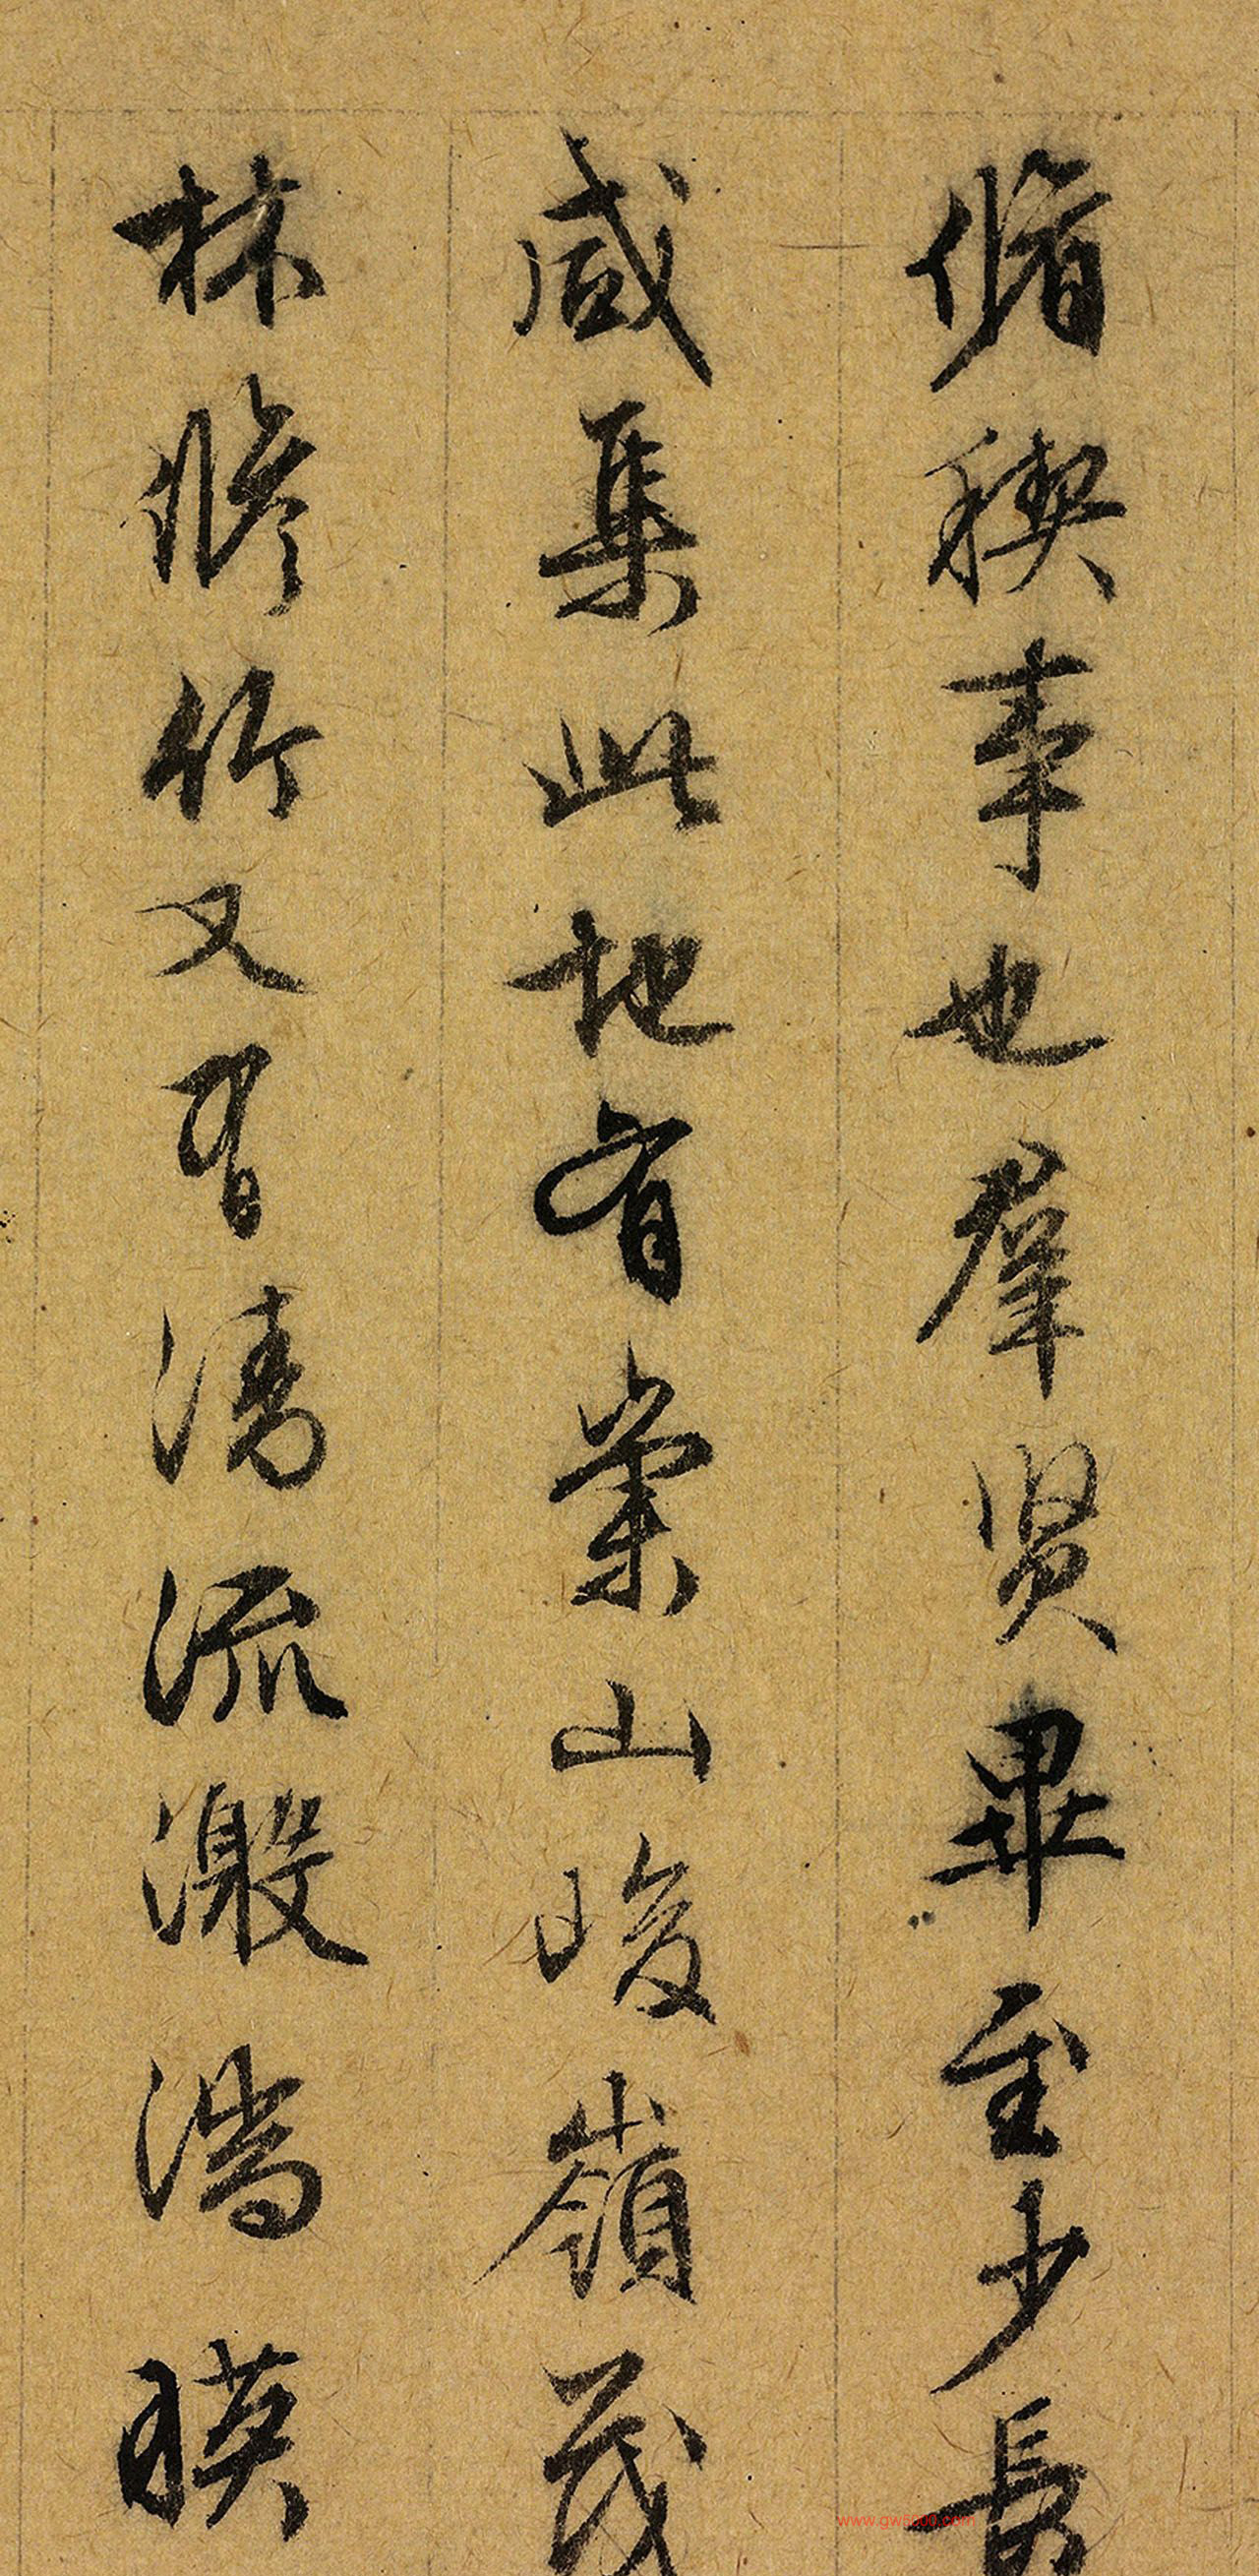 脩稧事也羣賢畢至少長
咸集此地有崇山峻嶺茂
林脩竹又有清流激湍暎
www.gw5000.com